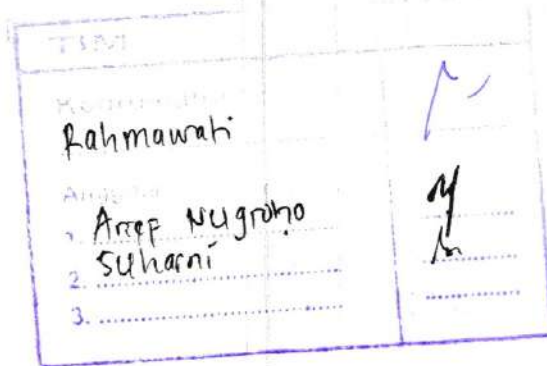 TIM
Rahmawati
Anggota
1. Arief Nugroho
2. Suharni
3.